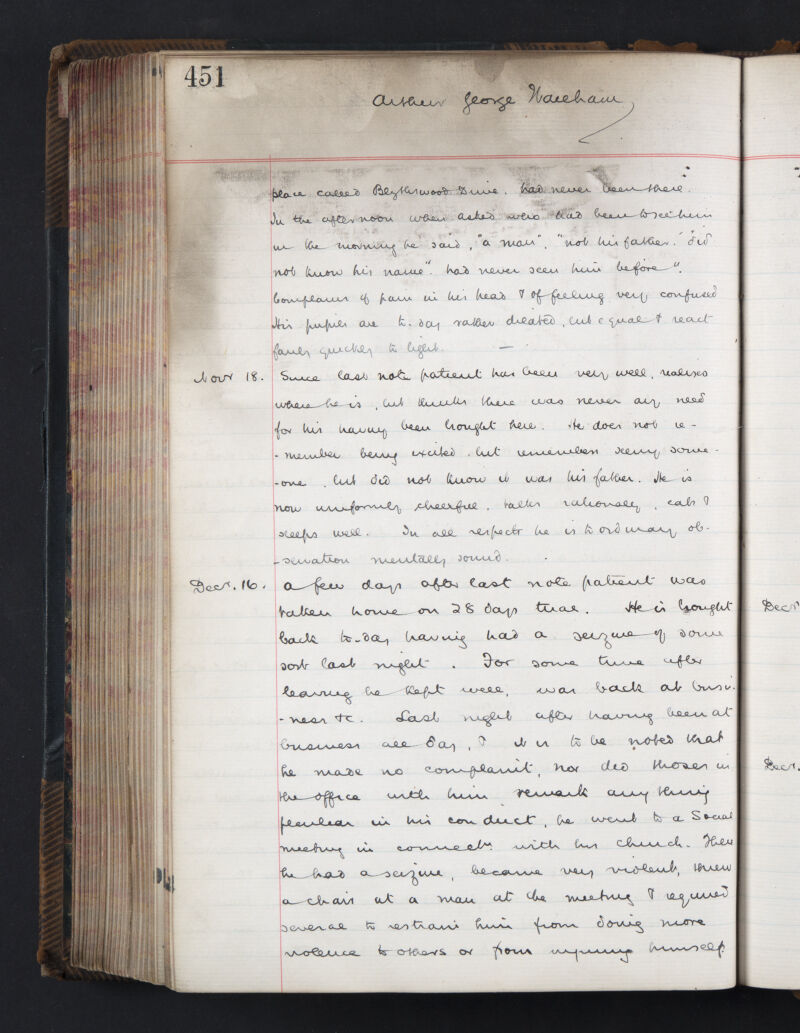 451
Arthur George Wareham
place called Blythswood Drive. had never been there.
In the afternoon when asked who had been to see him
in the morning he said, "a man", "not his father." did
not know his name". had never seen him before".
Complains of pain in his head & of feeling very confused
His pupils are to-day rather dilated, but equal & react
fairly quickly to light. —
Novr 18. Since last note patient has been very well, realises
where he is, but thinks there was never any need
for his having been brought here. He does not re-
-member being excited but remembers seeing some-
-one, but did not know it was his father. He is
now uniformly cheerful, talks rationally, eats &
sleeps well. In all respects he is to ordinary ob-
-servation mentally sound.
Decr. 16. A few days after last note patient was
taken home on 28 days trial. He is brought
back to-day having had a seizure of some
sort last night. For some time after
leaving he kept well, was back at busi-
-ness &c. Last night after having been at
business all day, & it is to be noted that
he made no complaint, nor did those in
the office with him remark any thing
peculiar in his conduct, he went to a Social
meeting in connectn. with his church. There
he had a seizure, became very violent, threw
a chair at a man at the meeting & required
several to restrain him from doing more
violence to others or from injuring himself
Decr
Decr.